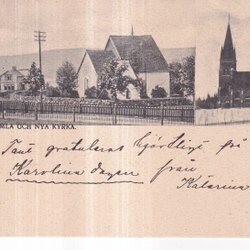 MLA OCH NYA KYRKA.
Tant gratuleras hjärtligt på
Karolina dagen från
Katarina